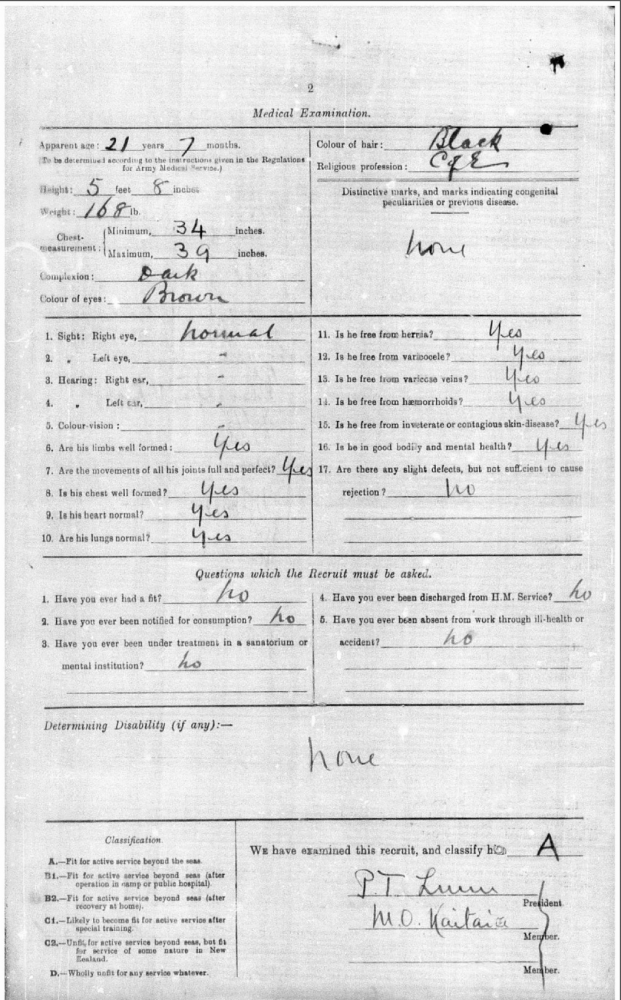 2
Medical Examination.
Apparent age: 21 years 7 months.
(To be determined according to the instructions given in the Regulations
for Army Medical Service.)
Height: 5 feet 8 inches
Weight: 168 lb.
Chest-measurement: Minimum, 34 inches.
Maximum, 39 inches.
Complexion: Dark
Colour of eyes: Brown
Colour of hair: Black
Religious profession: C of E
Distinctive marks, and marks indicating congenital
peculiarities or previous disease.
None
1. Sight: Right eye, normal
2. " Left eye, "
3. Hearing: Right ear, "
4. " Left ear, "
5. Colour-vision: "
6. Are his limbs well formed: Yes
7. Are the movements of all his joints full and perfect? Yes
8. Is his chest well formed? Yes
9. Is his heart normal? Yes
10. Are his lungs normal? Yes
11. Is he free from hernia? Yes
12. Is he free from varicocele? Yes
13. Is he free from varicose veins? Yes
14. Is he free from hæmorrhoids? Yes
15. Is he free from inveterate or contagious skin-disease? Yes
16. Is he in good bodily and mental health? Yes
17. Are there any slight defects, but not sufficient to cause
rejection? No
Questions which the Recruit must be asked.
1. Have you ever had a fit? No
2. Have you ever been notified for consumption? No
3. Have you ever been under treatment in a sanatorium or
mental institution? No
4. Have you ever been discharged from H.M. Service? No
5. Have you ever been absent from work through ill-health or
accident? No
Determining Disability (if any):—
None
Classification.
A.—Fit for active service beyond the seas.
B1.—Fit for active service beyond seas (after
operation in camp or public hospital).
B2.—Fit for active service beyond seas (after
recovery at home).
C1.—Likely to become fit for active service after
special training.
C2.—Unfit for active service beyond seas, but fit
for service of some nature in New
Zealand.
D.—Wholly unfit for any service whatever.
We have examined this recruit, and classify him A
P.T.
President.
M.O. Kaitaia
Member.
Member.